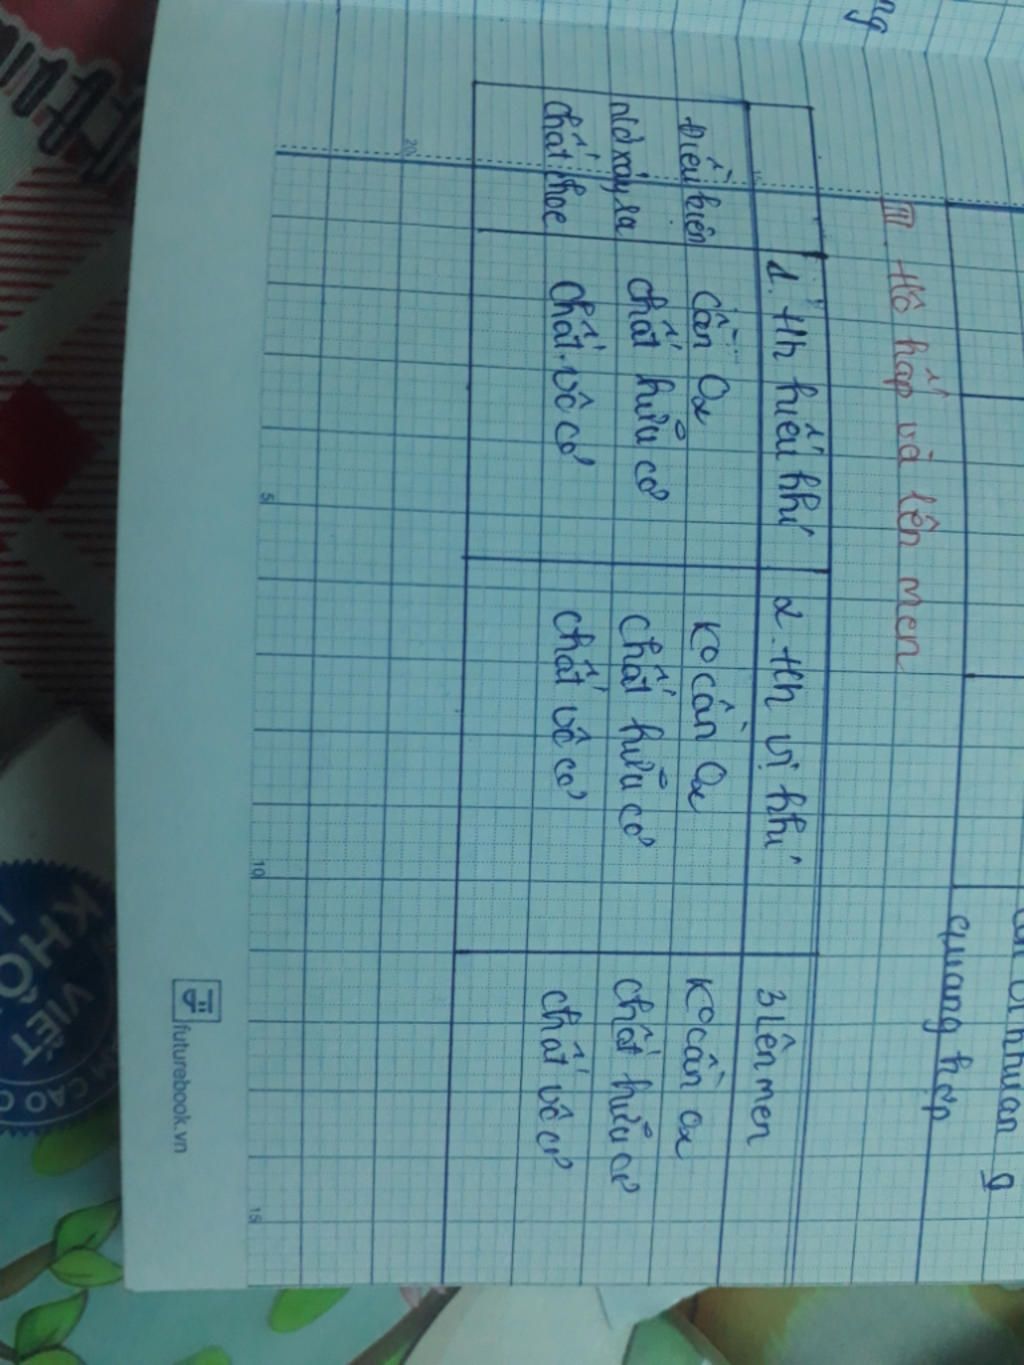 ng
quang hợp
III Hô hấp và lên men
1. Hh hiếu khí 2. Hh vị khí 3 lên men
Điều kiện Cần O2 Ko cần O2 Ko cần O2
nơi xảy ra chất hữu cơ chất hữu cơ chất hữu cơ
chất thoe chất vô cơ chất vô cơ chất vô cơ
20
5
10
15
futurebook.vn
VIẾT
KHÔ
CAO C